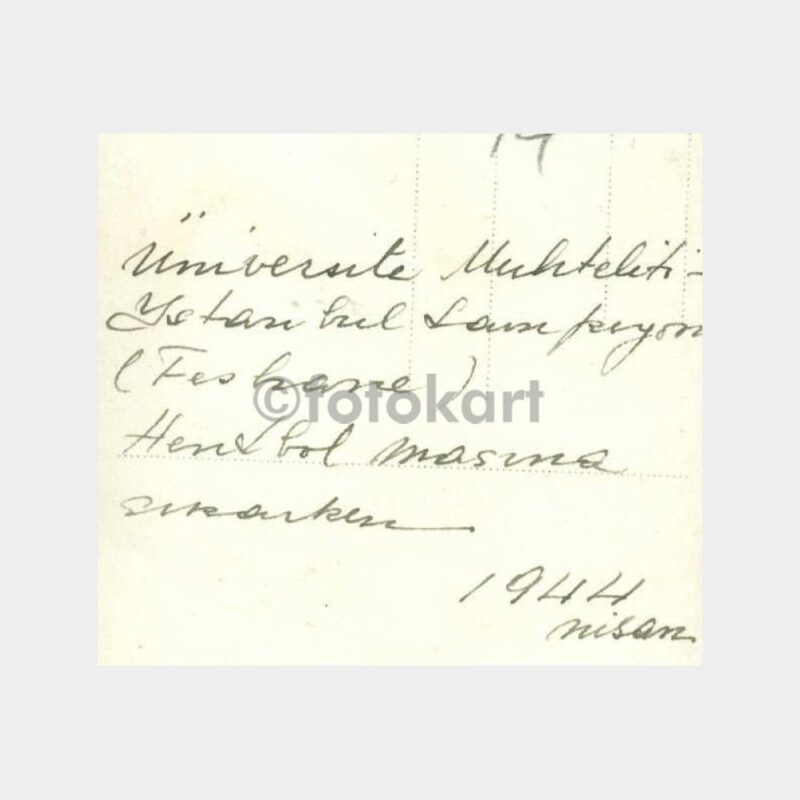 14
Üniversite Muhteliti-
Istanbul Şampiyon
(Feshane)
©fotokart
Hentbol maçına
çıkarken
1944
nisan